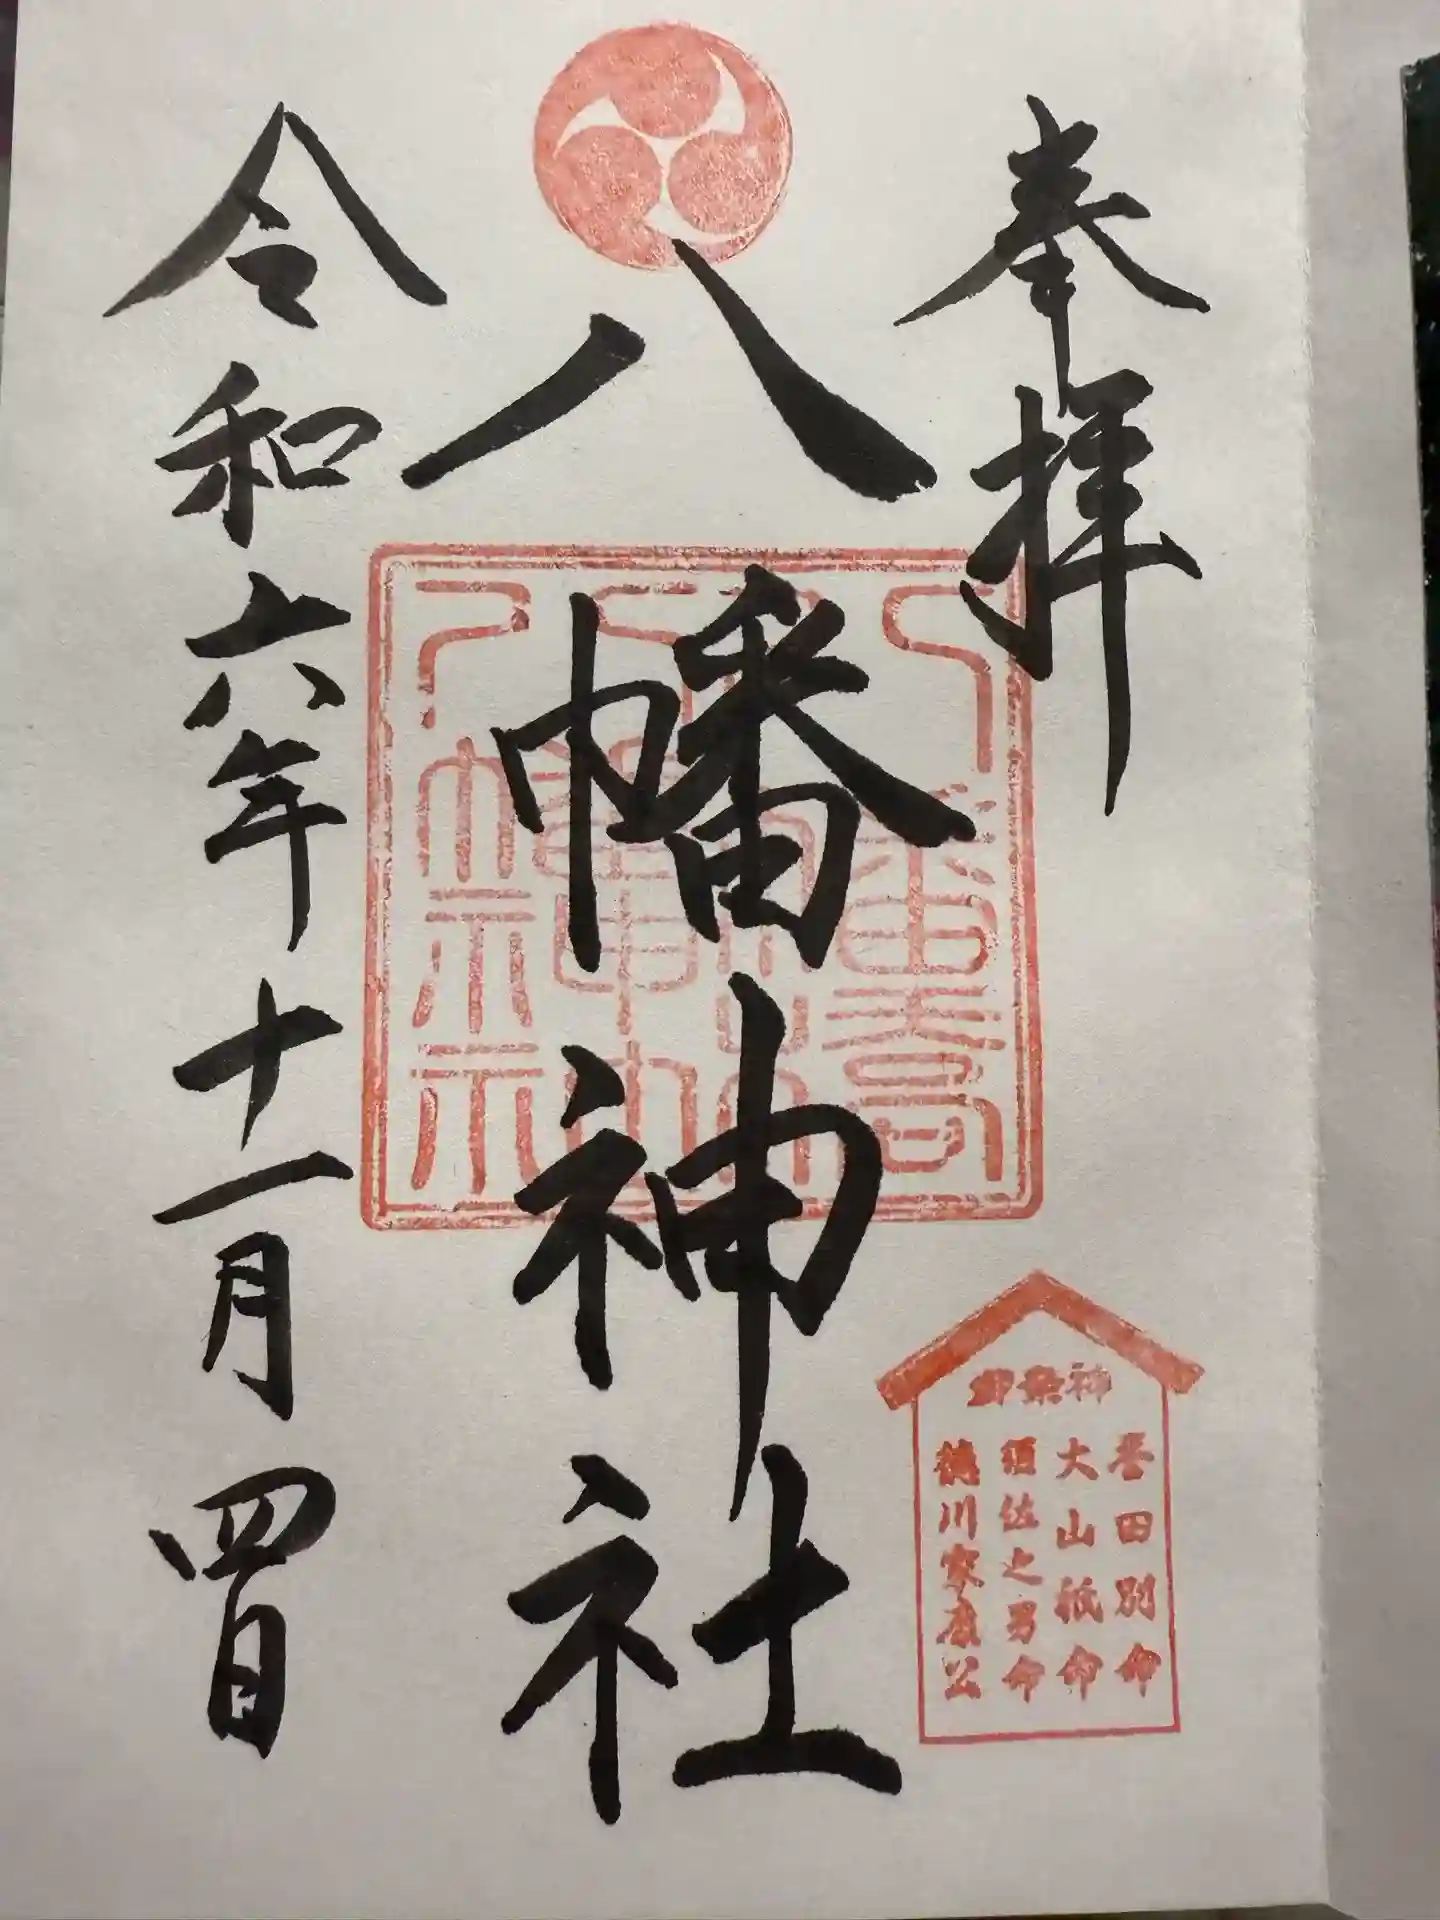 奉拝
八幡神社
令和六年十一月四日
御祭神
誉田別命
大山祇命
須佐之男命
徳川家康公